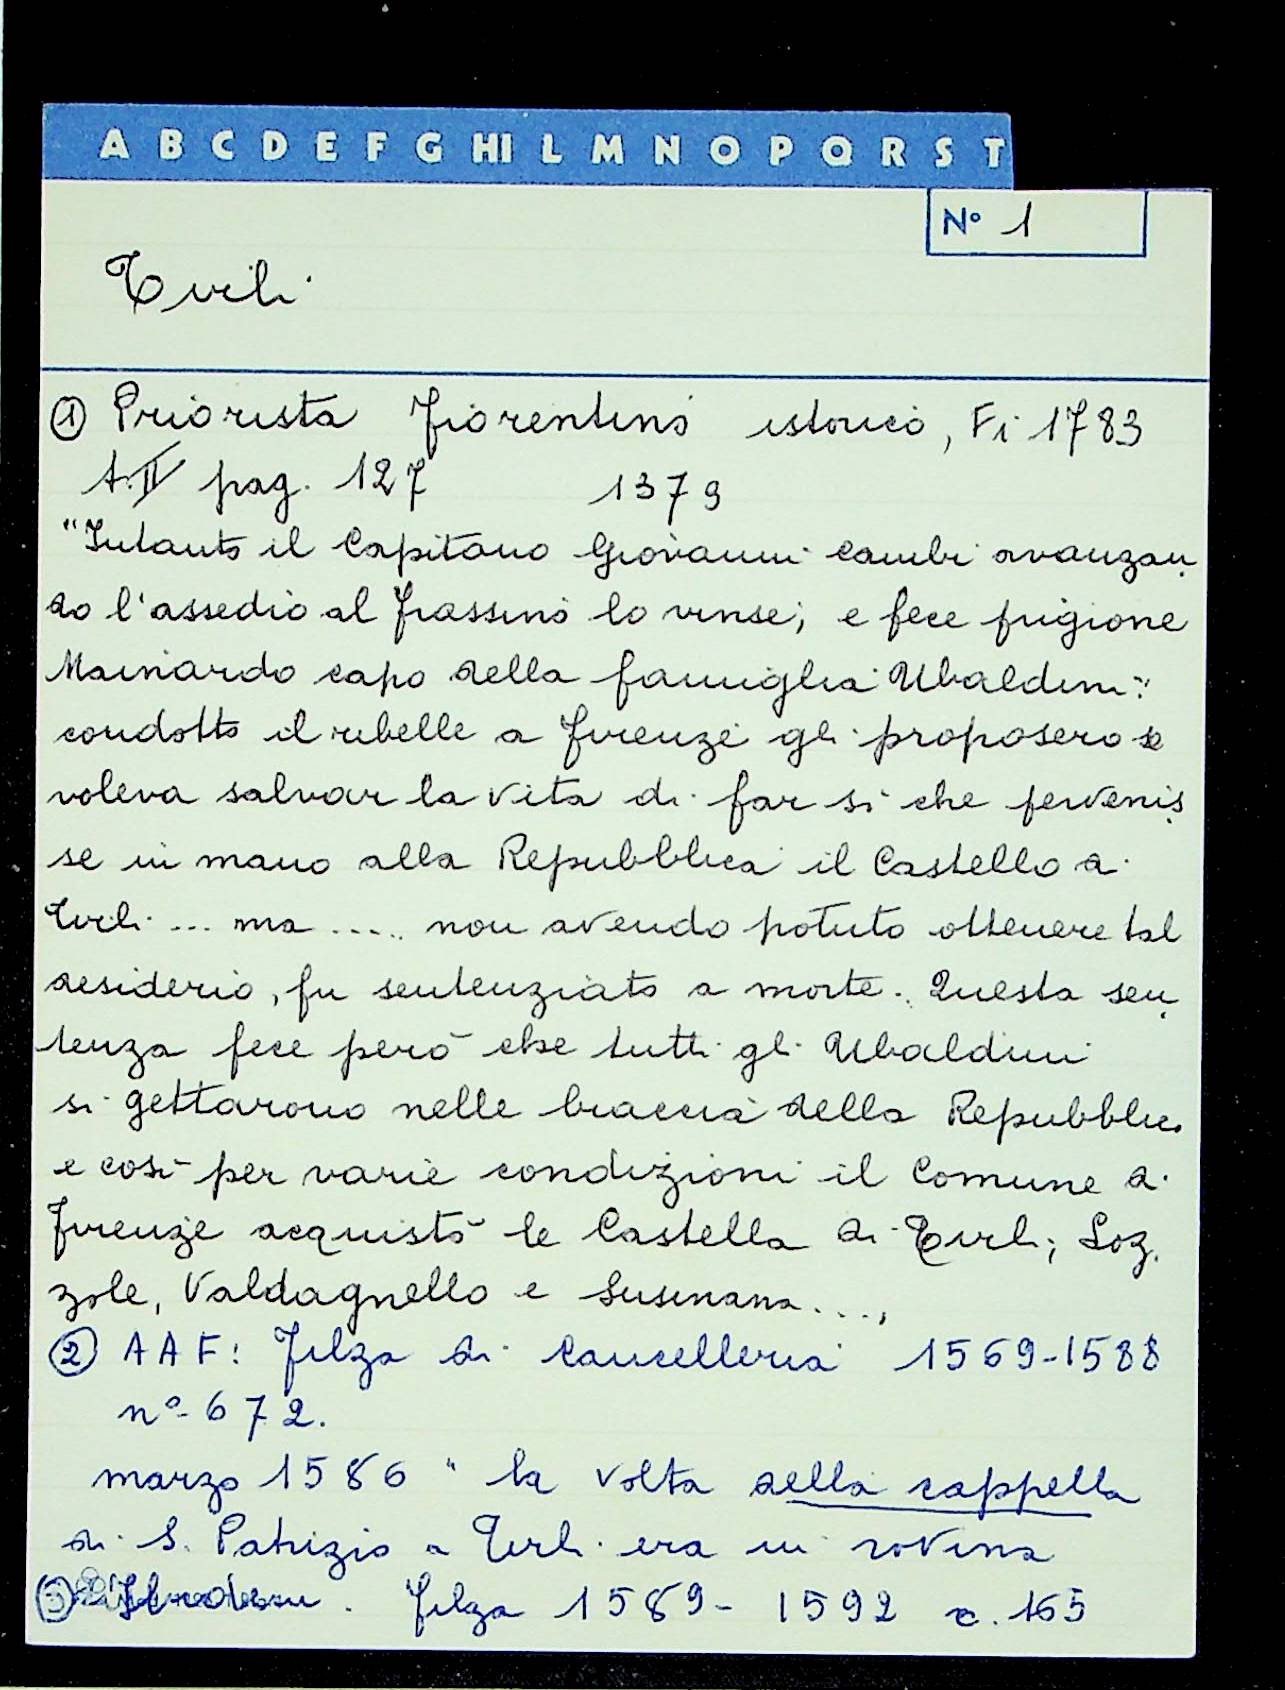 A B C D E F G HI L M N O P Q R S T
N° 1
Tirli
① Priorista fiorentino istorico, Fi 1783
t. II pag. 127 1379
"Intanto il Capitano Giovanni Cambi avanzan
do l'assedio al frassino lo vinse; e fece prigione
Mainardo capo della famiglia Ubaldini:
condotto il ribelle a Firenze gli proposero se
voleva salvar la vita di far sì che pervenis
se in mano alla Repubblica il Castello di
Tirli ... ma ..... non avendo potuto ottenere tal
desiderio, fu sentenziato a morte. Questa sen
tenza fece però che tutti gli Ubaldini
si gettarono nelle braccia della Repubblic.
e così per varie condizioni il Comune di
Firenze acquistò le Castella di Tirli, Loz
zole, Valdagnello e Susinana....,
② AAF: Filza di Cancelleria 1569-1588
n° 672.
marzo 1586 " la volta della cappella
di S. Patrizio a Tirli era in rovina
③ Filza 1589-1592 c. 165